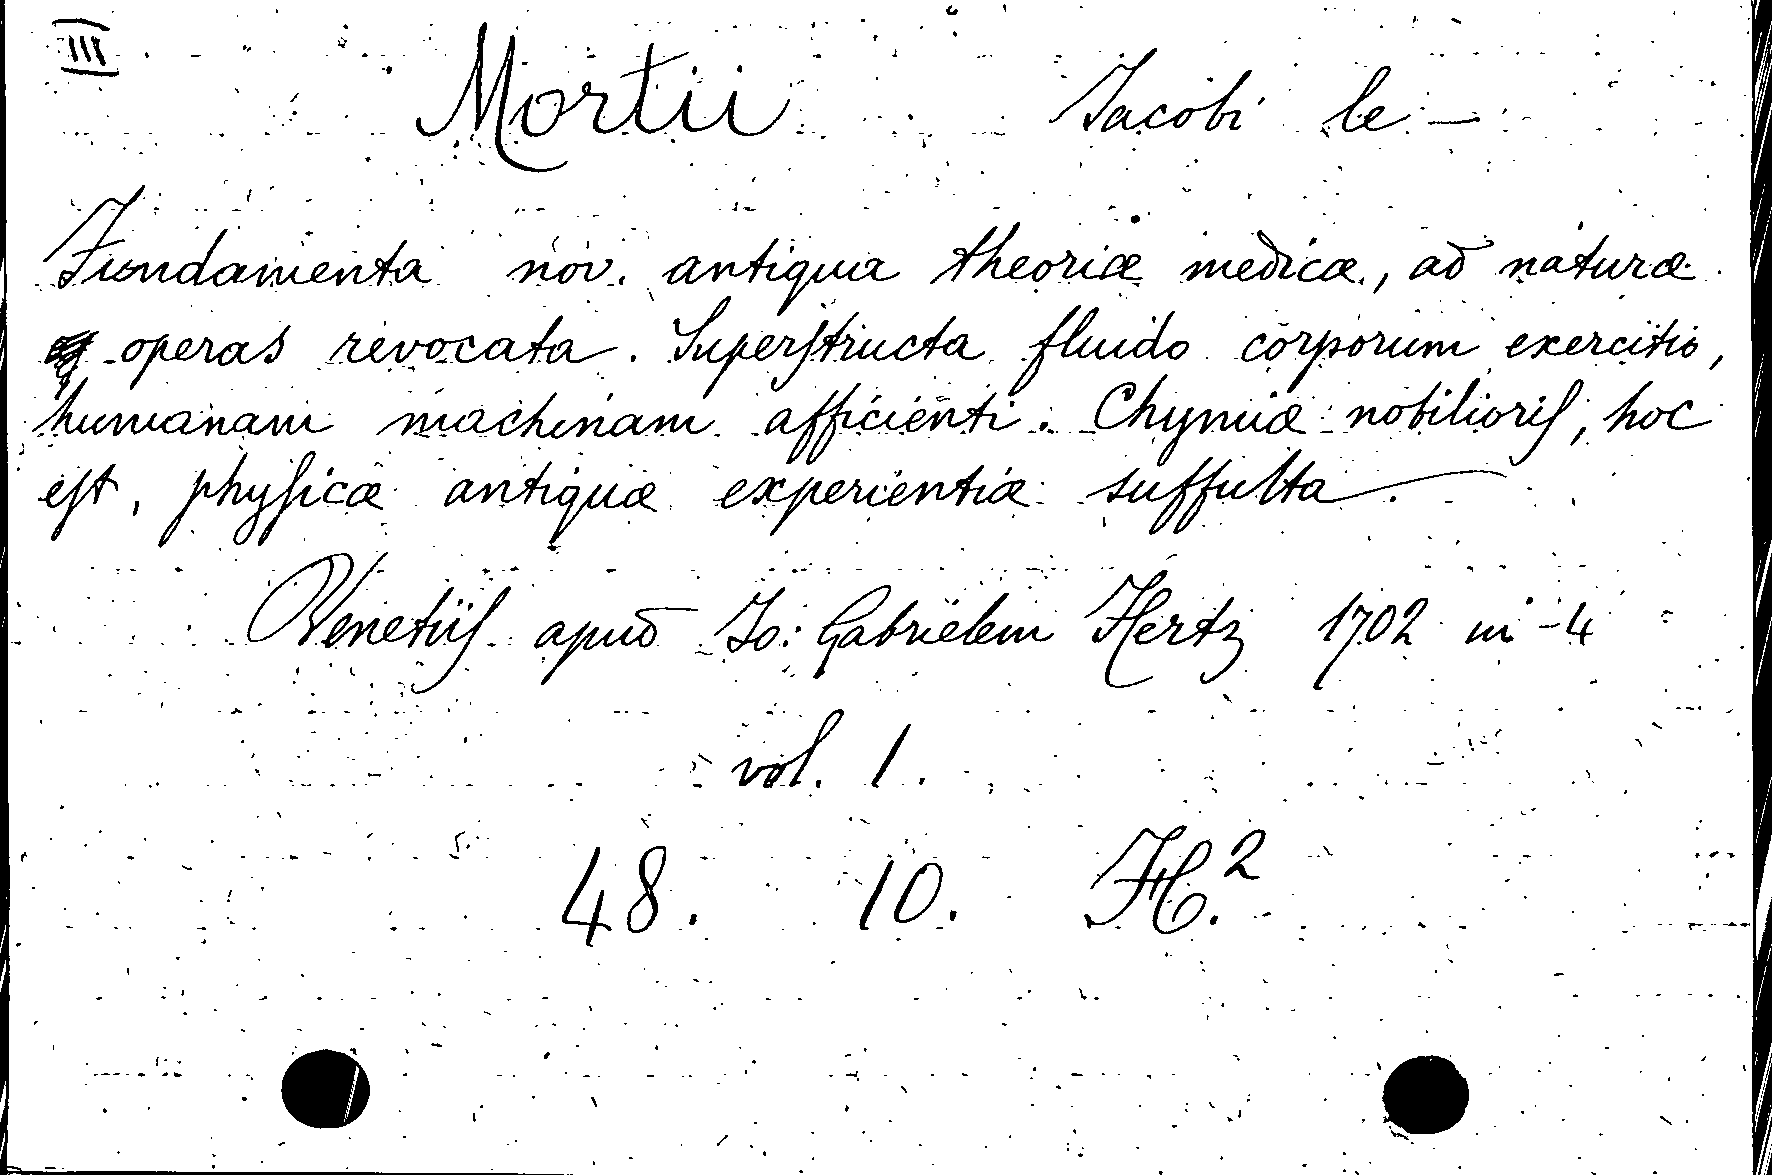 III
Mortii Jacobi le —
Fundamenta nov. antiqua theoriæ medicæ, ad naturæ
operas revocata. Superſtructa fluido corporum exercitio,
humanam machinam afficienti. Chymiæ nobilioriſ, hoc
eſt, phyſicæ antiquæ experientiæ suffulta.
Venetiiſ apud Jo: Gabrielem Hertz 1702 in-4
vol. 1.
48. 10. H.²